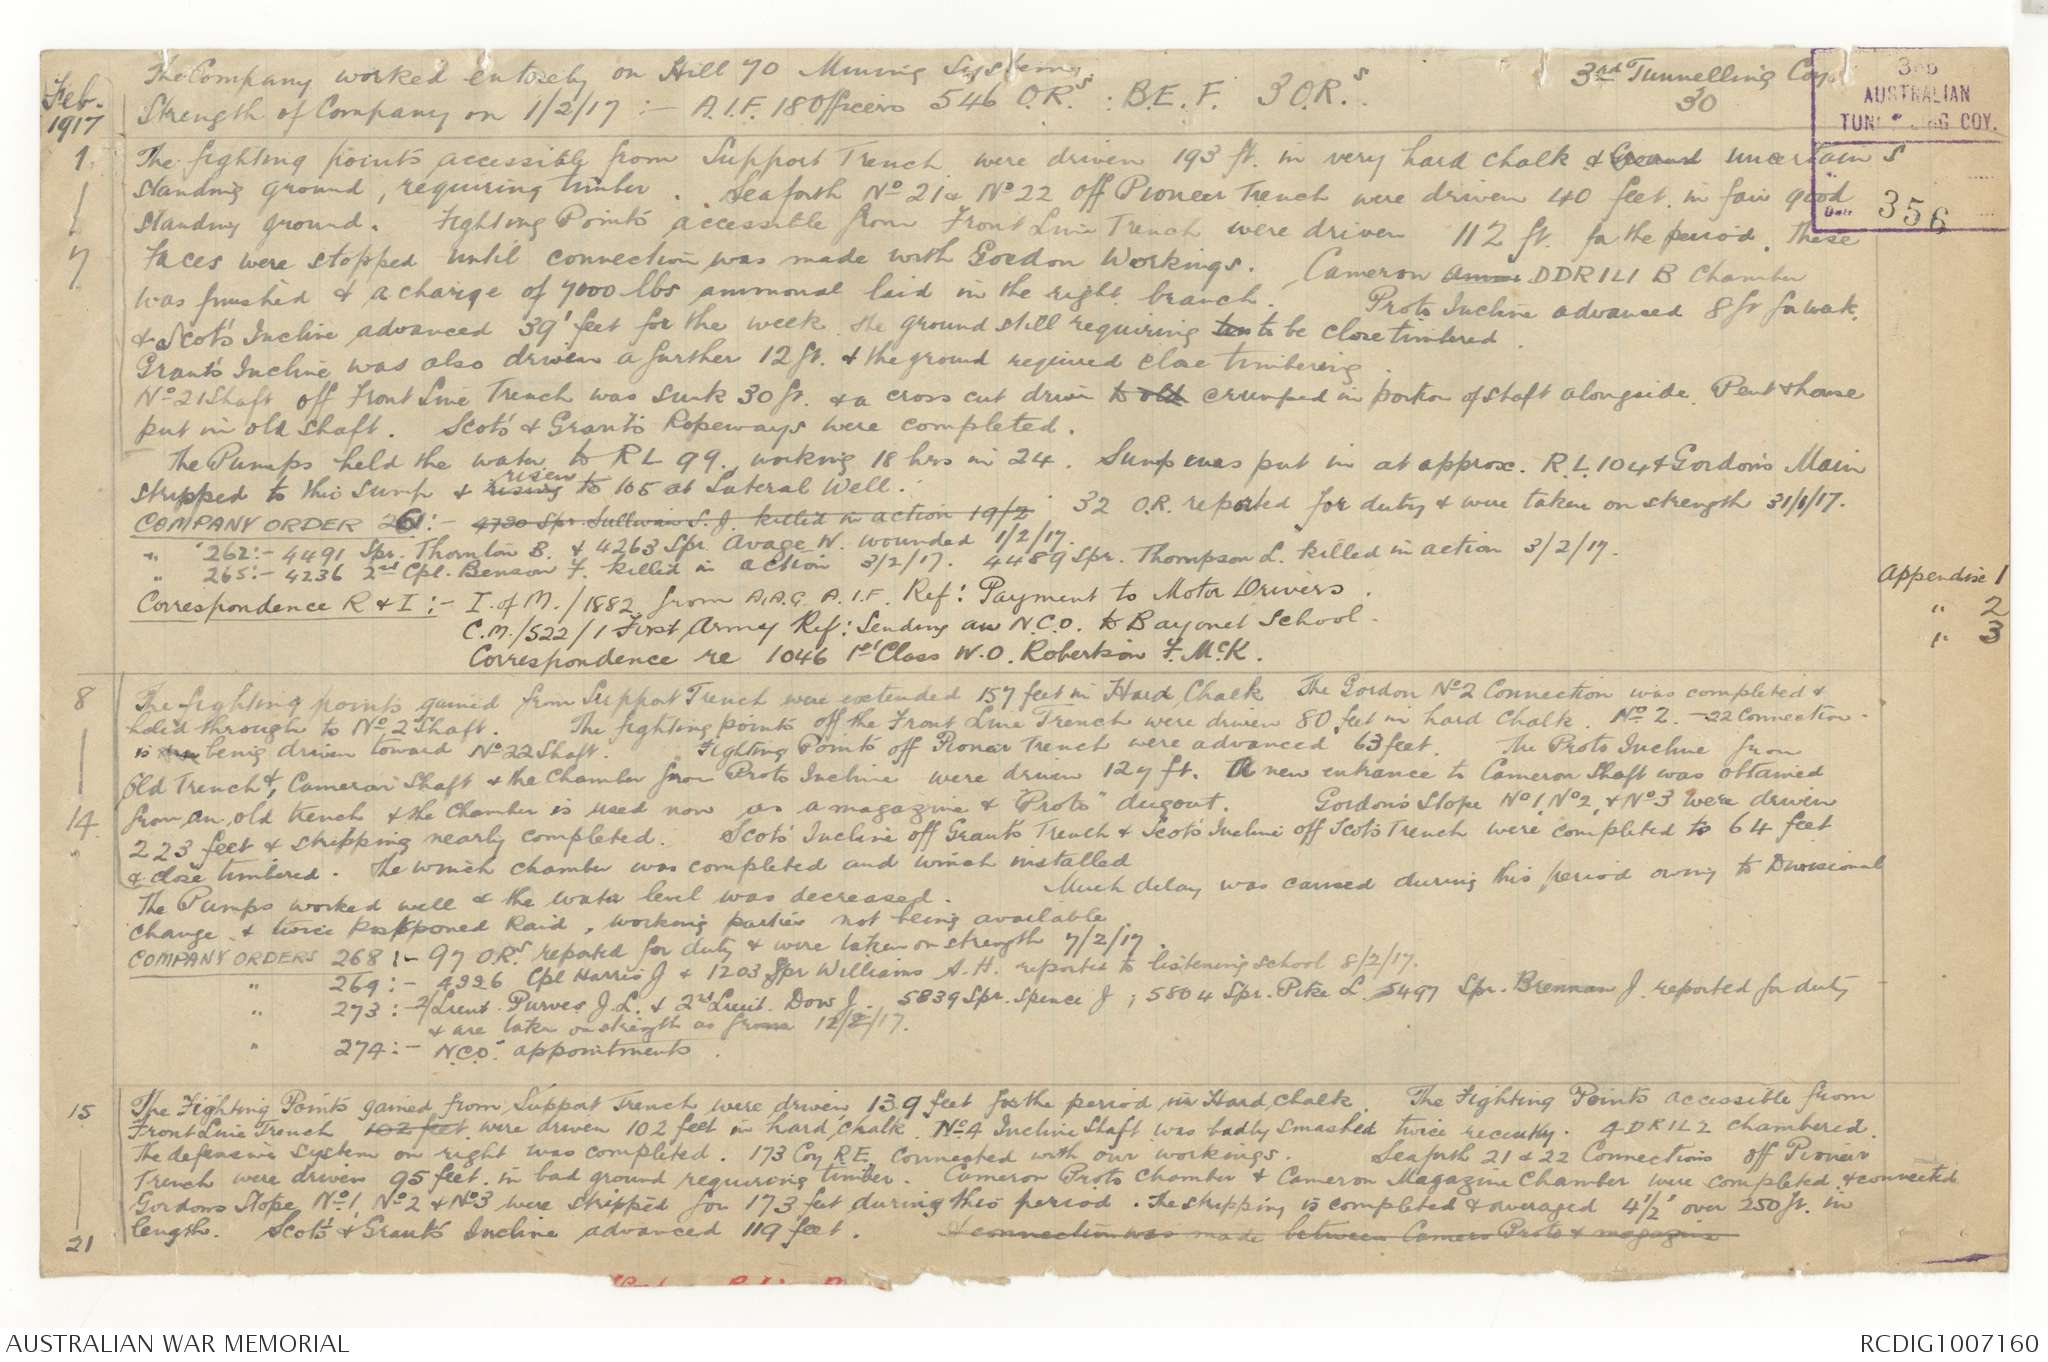 Feb. 1917
The Company worked entirely on Hill 70 Mining Systems
3rd Tunnelling Coy.
30
Strength of Company on 1/2/17 :- A.I.F. 18 Officers 546 O.R.s : B.E.F. 3 O.R.s.
AUSTRALIAN
COY.
Date 356
1 The fighting points accessible from Support Trench were driven 193 ft. in very hard chalk & Ground uncertain
standing ground, requiring timber. Seaforth No 21 & No 22 off Pioneer Trench were driven 40 feet in fair good
standing ground. Fighting Points accessible from Front Line Trench were driven 112 ft. for the period. These
7 faces were stopped until connection was made with Gordon Workings. Cameron DDR1L1 B Chamber
was finished & a charge of 7000 lbs ammonal laid in the right branch. Proto Incline advanced 8 ft for wek.
& Scots Incline advanced 39' feet for the week the ground still requiring to be close timbered.
Grant's Incline was also driven a further 12 ft. & the ground required close timbering.
No 21 Shaft off Front Line Trench was sunk 30 ft. & a cross cut driven to old crumped in portion of shaft alongside. Pent house
put in old shaft. Scot's & Grant's Ropeways were completed.
The Pumps held the water to RL 99. working 18 hrs in 24. Sump was put in at approx. R.L. 104 & Gordon's Main
stripped to this sump & rising risen to 105 at Lateral Well.
COMPANY ORDER 261:- 4730 Spr. Sullivan S. J. killed in action 19/ 32 O.R. reported for duty & were taken on strength 31/1/17.
" 262:- 4491 Spr. Thornton B. & 4263 Spr. Avage W. wounded 1/2/17.
" 265:- 4236 2nd Cpl. Benson F. killed in action 3/2/17. 4489 Spr. Thompson L. killed in action 3/2/17.
Correspondence R & I :- I. of M./1882 from A.A.G. A.I.F. Ref: Payment to Motor Drivers. Appendix 1
C.M./522/1 First Army Ref: Sending an N.C.O. to Bayonet School. " 2
Correspondence re 1046 1st Class W.O. Robertson F. McK. " 3
8 The fighting points gained from Support Trench were extended 157 feet in Hard Chalk The Gordon No 2 Connection was completed &
holed through to No 2 Shaft. The fighting points off the Front Line Trench were driven 80 feet in hard chalk. No 2. -22 Connection
is being driven toward No 22 Shaft. Fighting Points off Pioneer Trench were advanced 63 feet. The Proto Incline from
Old Trench & Cameron Shaft & the Chamber from Proto Incline were driven 127 ft. A new entrance to Cameron Shaft was obtained
14 from an old trench & the Chamber is used now as a magazine & "Proto" dugout. Gordon's Slope No 1, No 2, & No 3 were driven
223 feet & stripping nearly completed. Scots' Incline off Grant's Trench & Scot's Incline off Scots Trench were completed to 64 feet
& close timbered. The winch chamber was completed and winch installed
The Pumps worked well & the water level was decreased. Much delay was caused during this period owing to Divisional
change & twice postponed Raid, working parties not being available.
COMPANY ORDERS 268 :- 97 O.R.s reported for duty & were taken on strength 7/2/17.
" 269 :- 4326 Cpl Harris J & 1203 Spr Williams A. H. reported to listening school 8/2/17.
" 273 :- 2/Lieut. Purves J. L. & 2nd Lieut. Dow J. 5839 Spr. Spence J; 5804 Spr. Pike L. 5497 Spr. Brennan J. reported for duty
& are taken on strength as from 12/2/17.
" 274 :- N.C.O.s appointments.
15 The Fighting Points gained from Support Trench were driven 139 feet for the period in Hard chalk. The Fighting Points accessible from
Front Line Trench 102 feet were driven 102 feet in hard chalk. No 4 Incline Shaft was badly smashed twice recently. 4DR1L2 chambered.
The defensive system on right was completed. 173 Coy R.E. connected with our workings. Seaforth 21 & 22 Connections off Pioneer
Trench were driven 95 feet in bad ground requiring timber. Cameron Proto Chamber & Cameron Magazine Chamber were completed & connected
Gordons Slope No 1, No 2 & No 3 were stripped for 173 feet during this period. The stripping is completed & averaged 4½' over 250 ft. in
21 length. Scot's & Grant's Incline advanced 119 feet. A connection was made between Camero Proto & magazine
AUSTRALIAN WAR MEMORIAL
RCDIG1007160